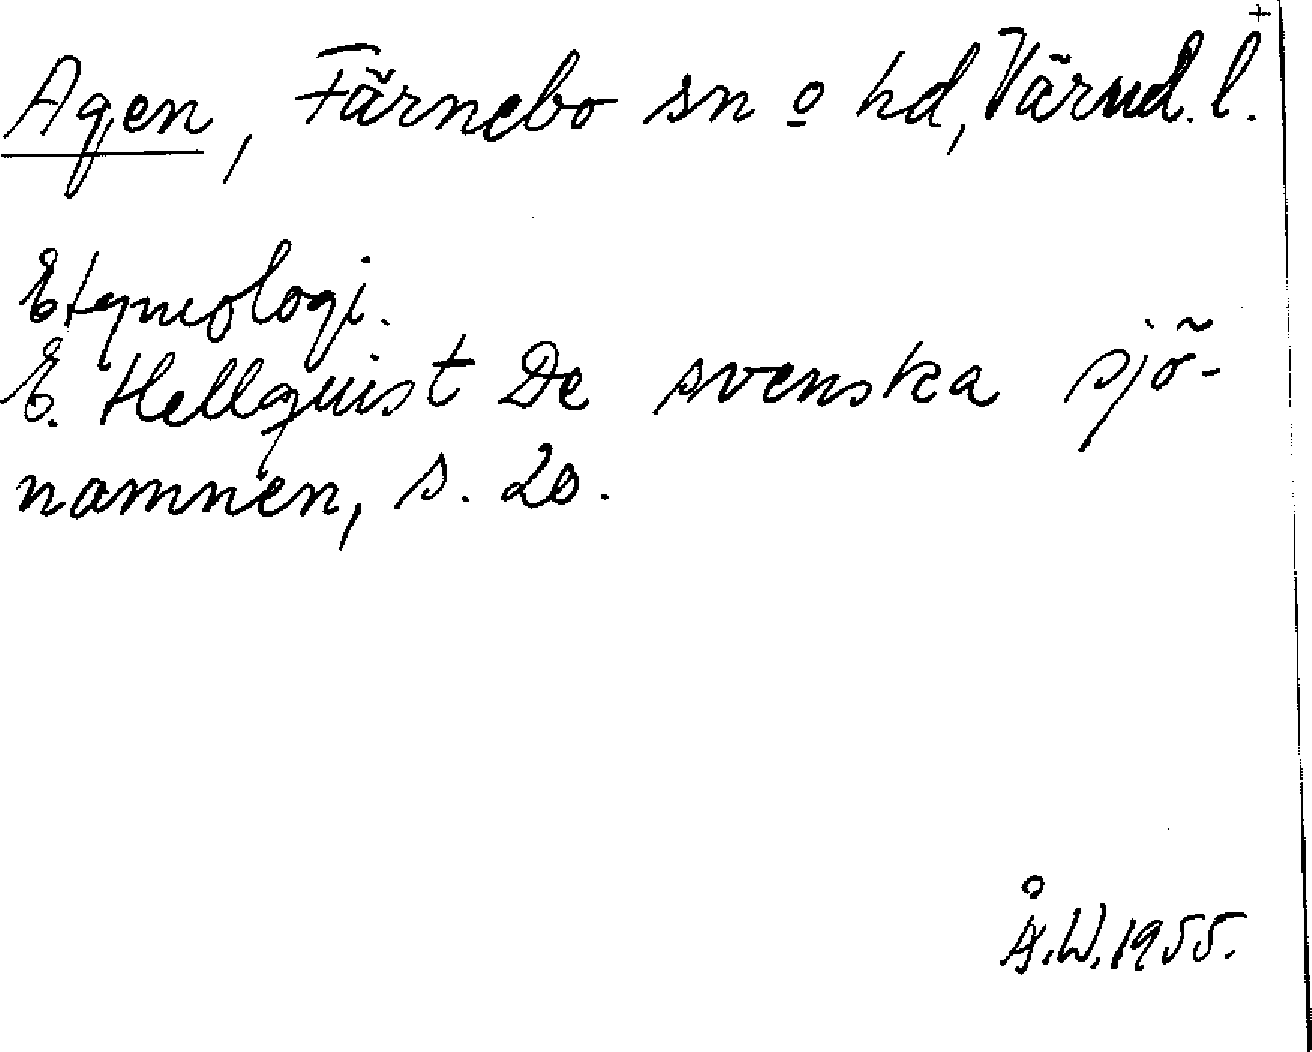 Agen, Färnebo sn o hd, Värml. l.
Etymologi.
E. Hellquist De svenska sjö-
namnen, s. 20.
Å.W. 1955.